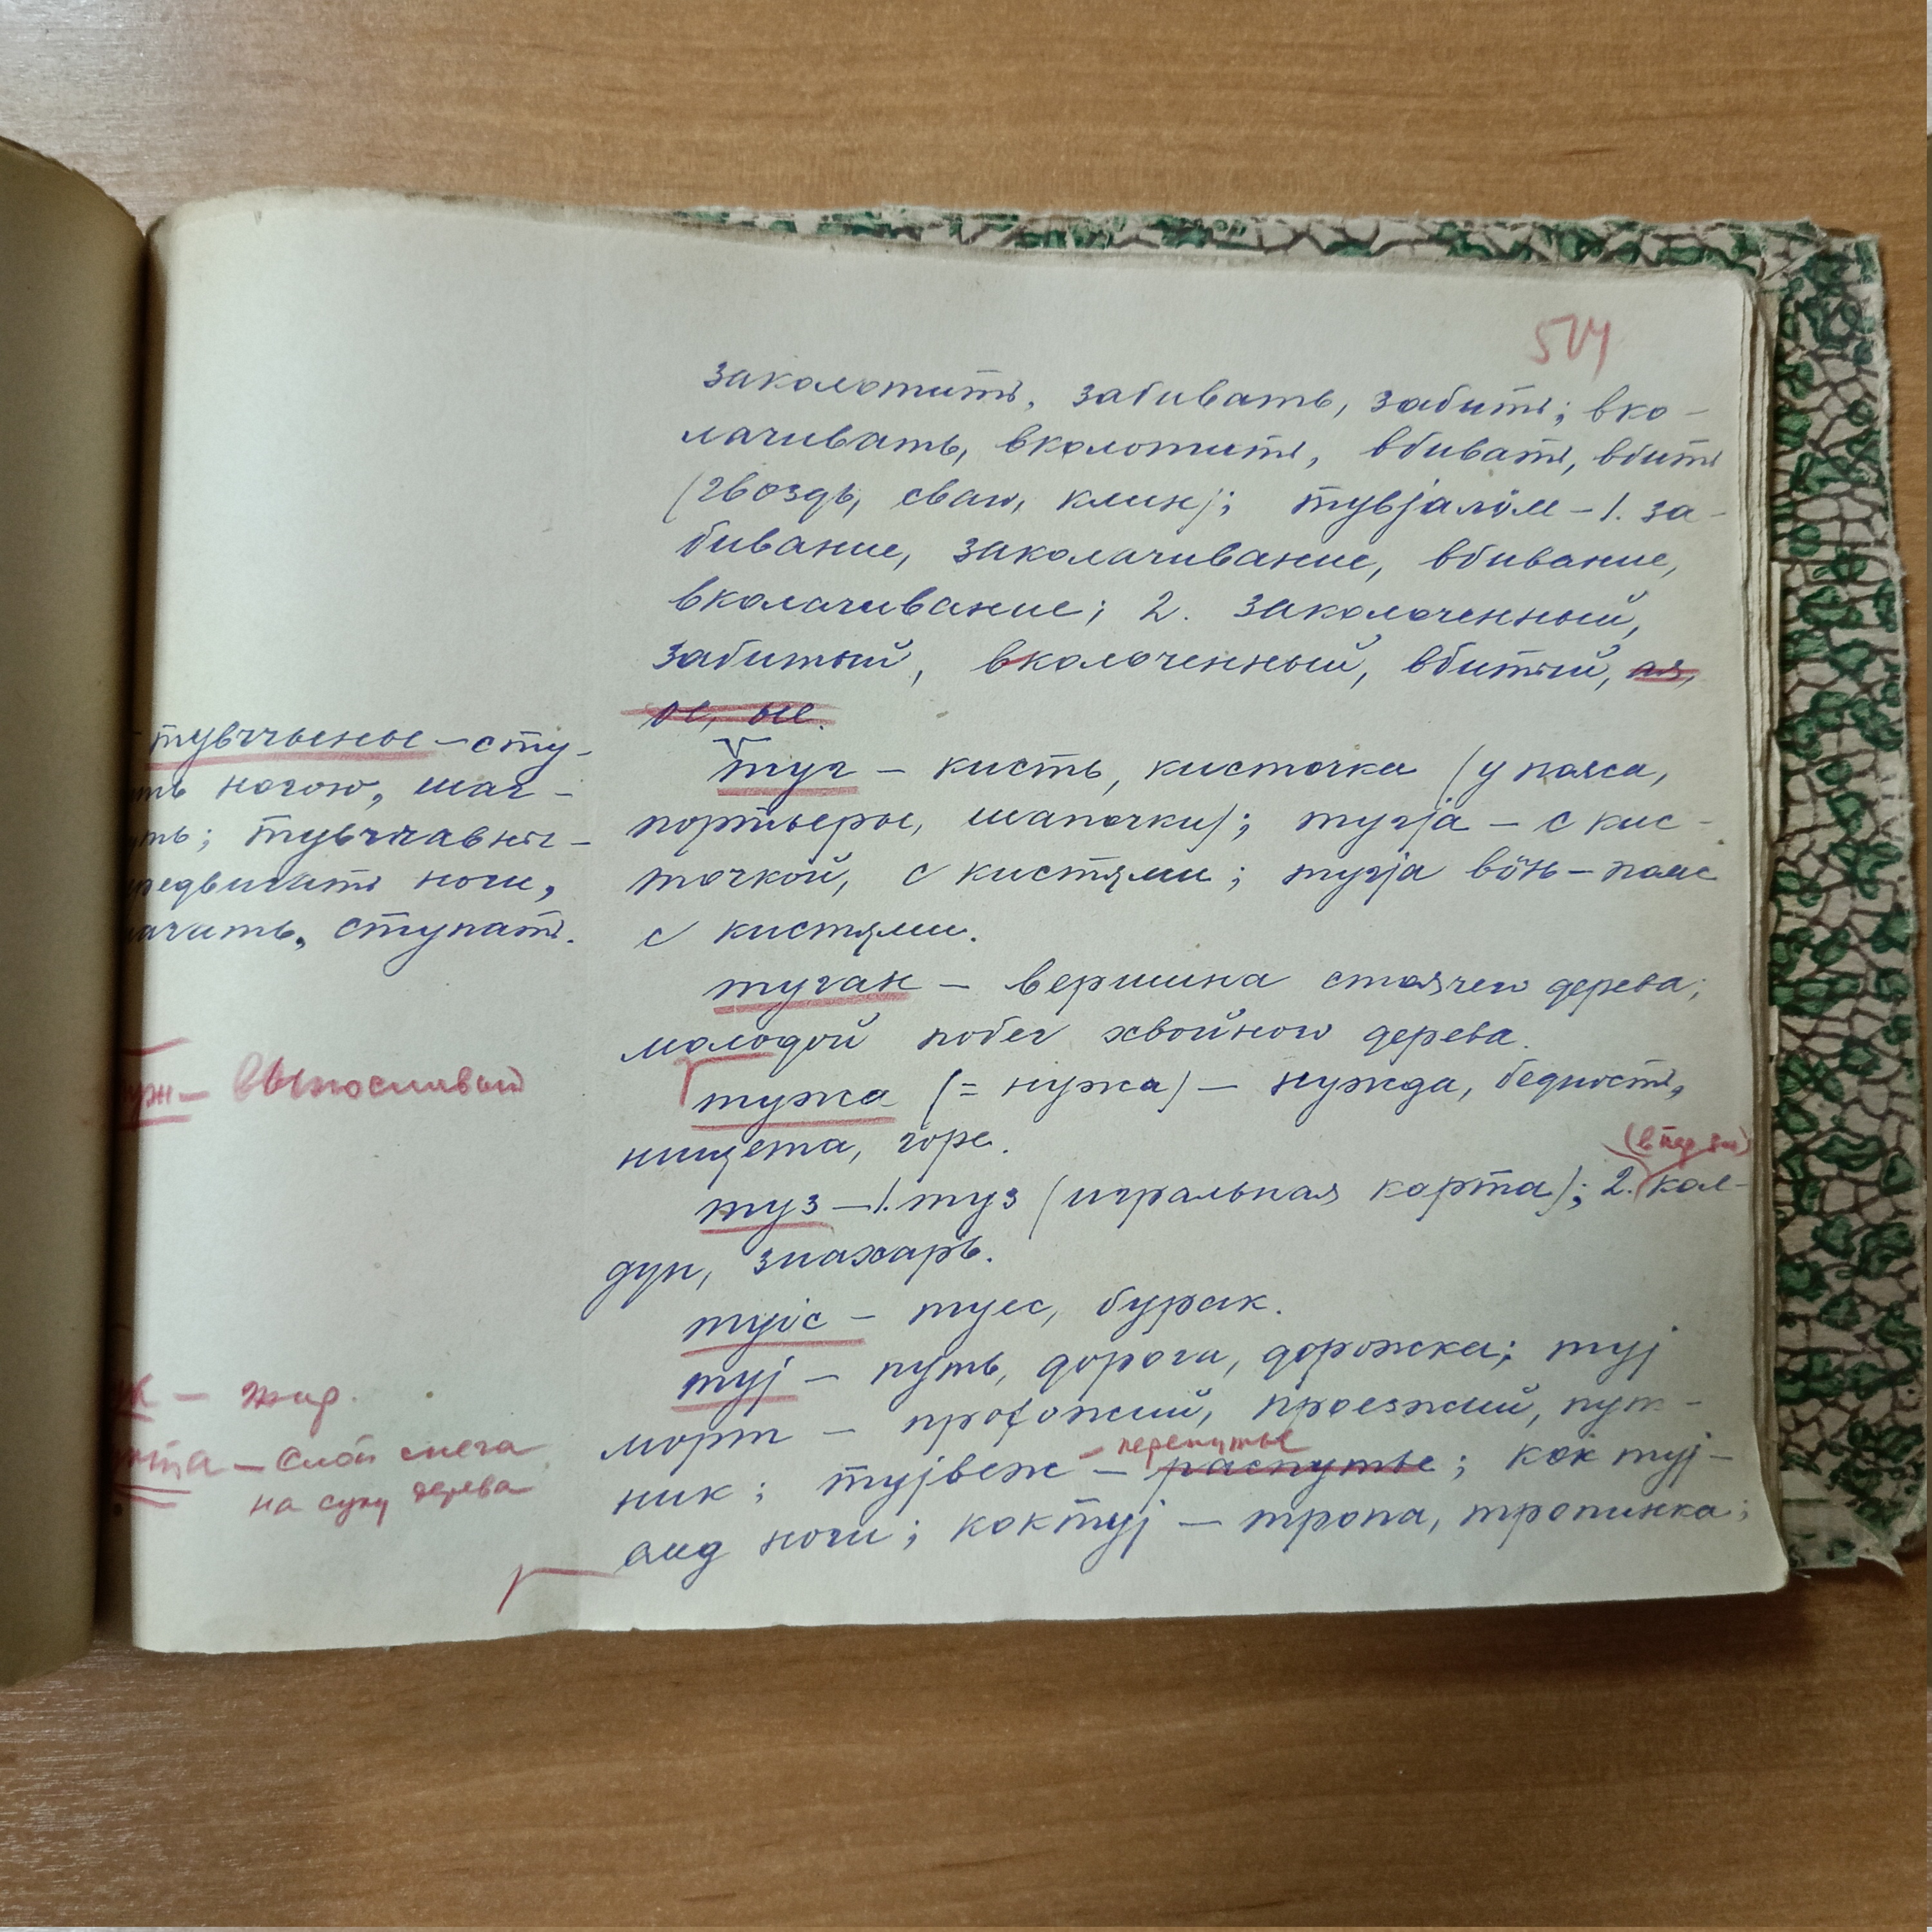 504
заколотить, забивать, забить; вко-
лачивать, вколотить, вбивать, вбить
(гвоздь, сваю, клин); тувјалӧм – 1. за-
бивание, заколачивание, вбивание,
вколачивание; 2. заколоченный,
забитый, вколоченный, вбитый, ая,
ое, ые.
туг – кисть, кисточка (у пояса,
портьеры, шапочки); тугја – с кис-
точкой, с кистями; тугја вӧнь – пояс
с кистями.
туган – вершина стоячего дерева;
молодой побег хвойного дерева.
тужа (= нужа) – нужда, бедность,
нищета, горе.
(в пер. зн.)
туз – 1. туз (игральная карта); 2. кол-
дун, знахарь.
туіс – туес, бурак.
туј – путь, дорога, дорожка; туј
морт – прохожий, проезжий, пут-
– перепутье
ник; тујвеж – распутье; кок туј –
след ноги; коктуј – тропа, тропинка;
тувччыны – сту-
ть ногою, шаг-
ть; тувччавны –
редвигать ноги,
ступать.
– выносливый
– жир.
– слой снега
на суку дерева